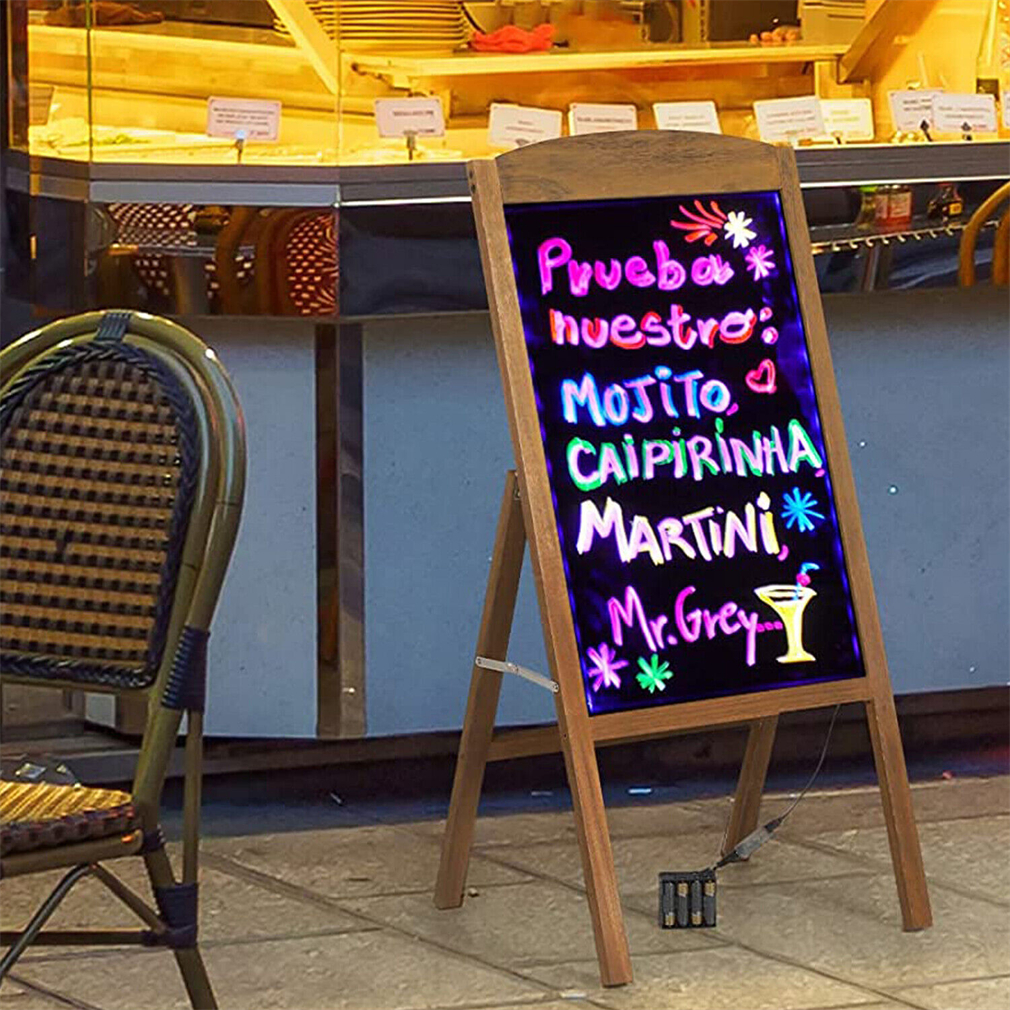 Prueba
nuestro:
MOJITO,
CAIPIRINHA,
MARTiNi,
Mr. Grey...